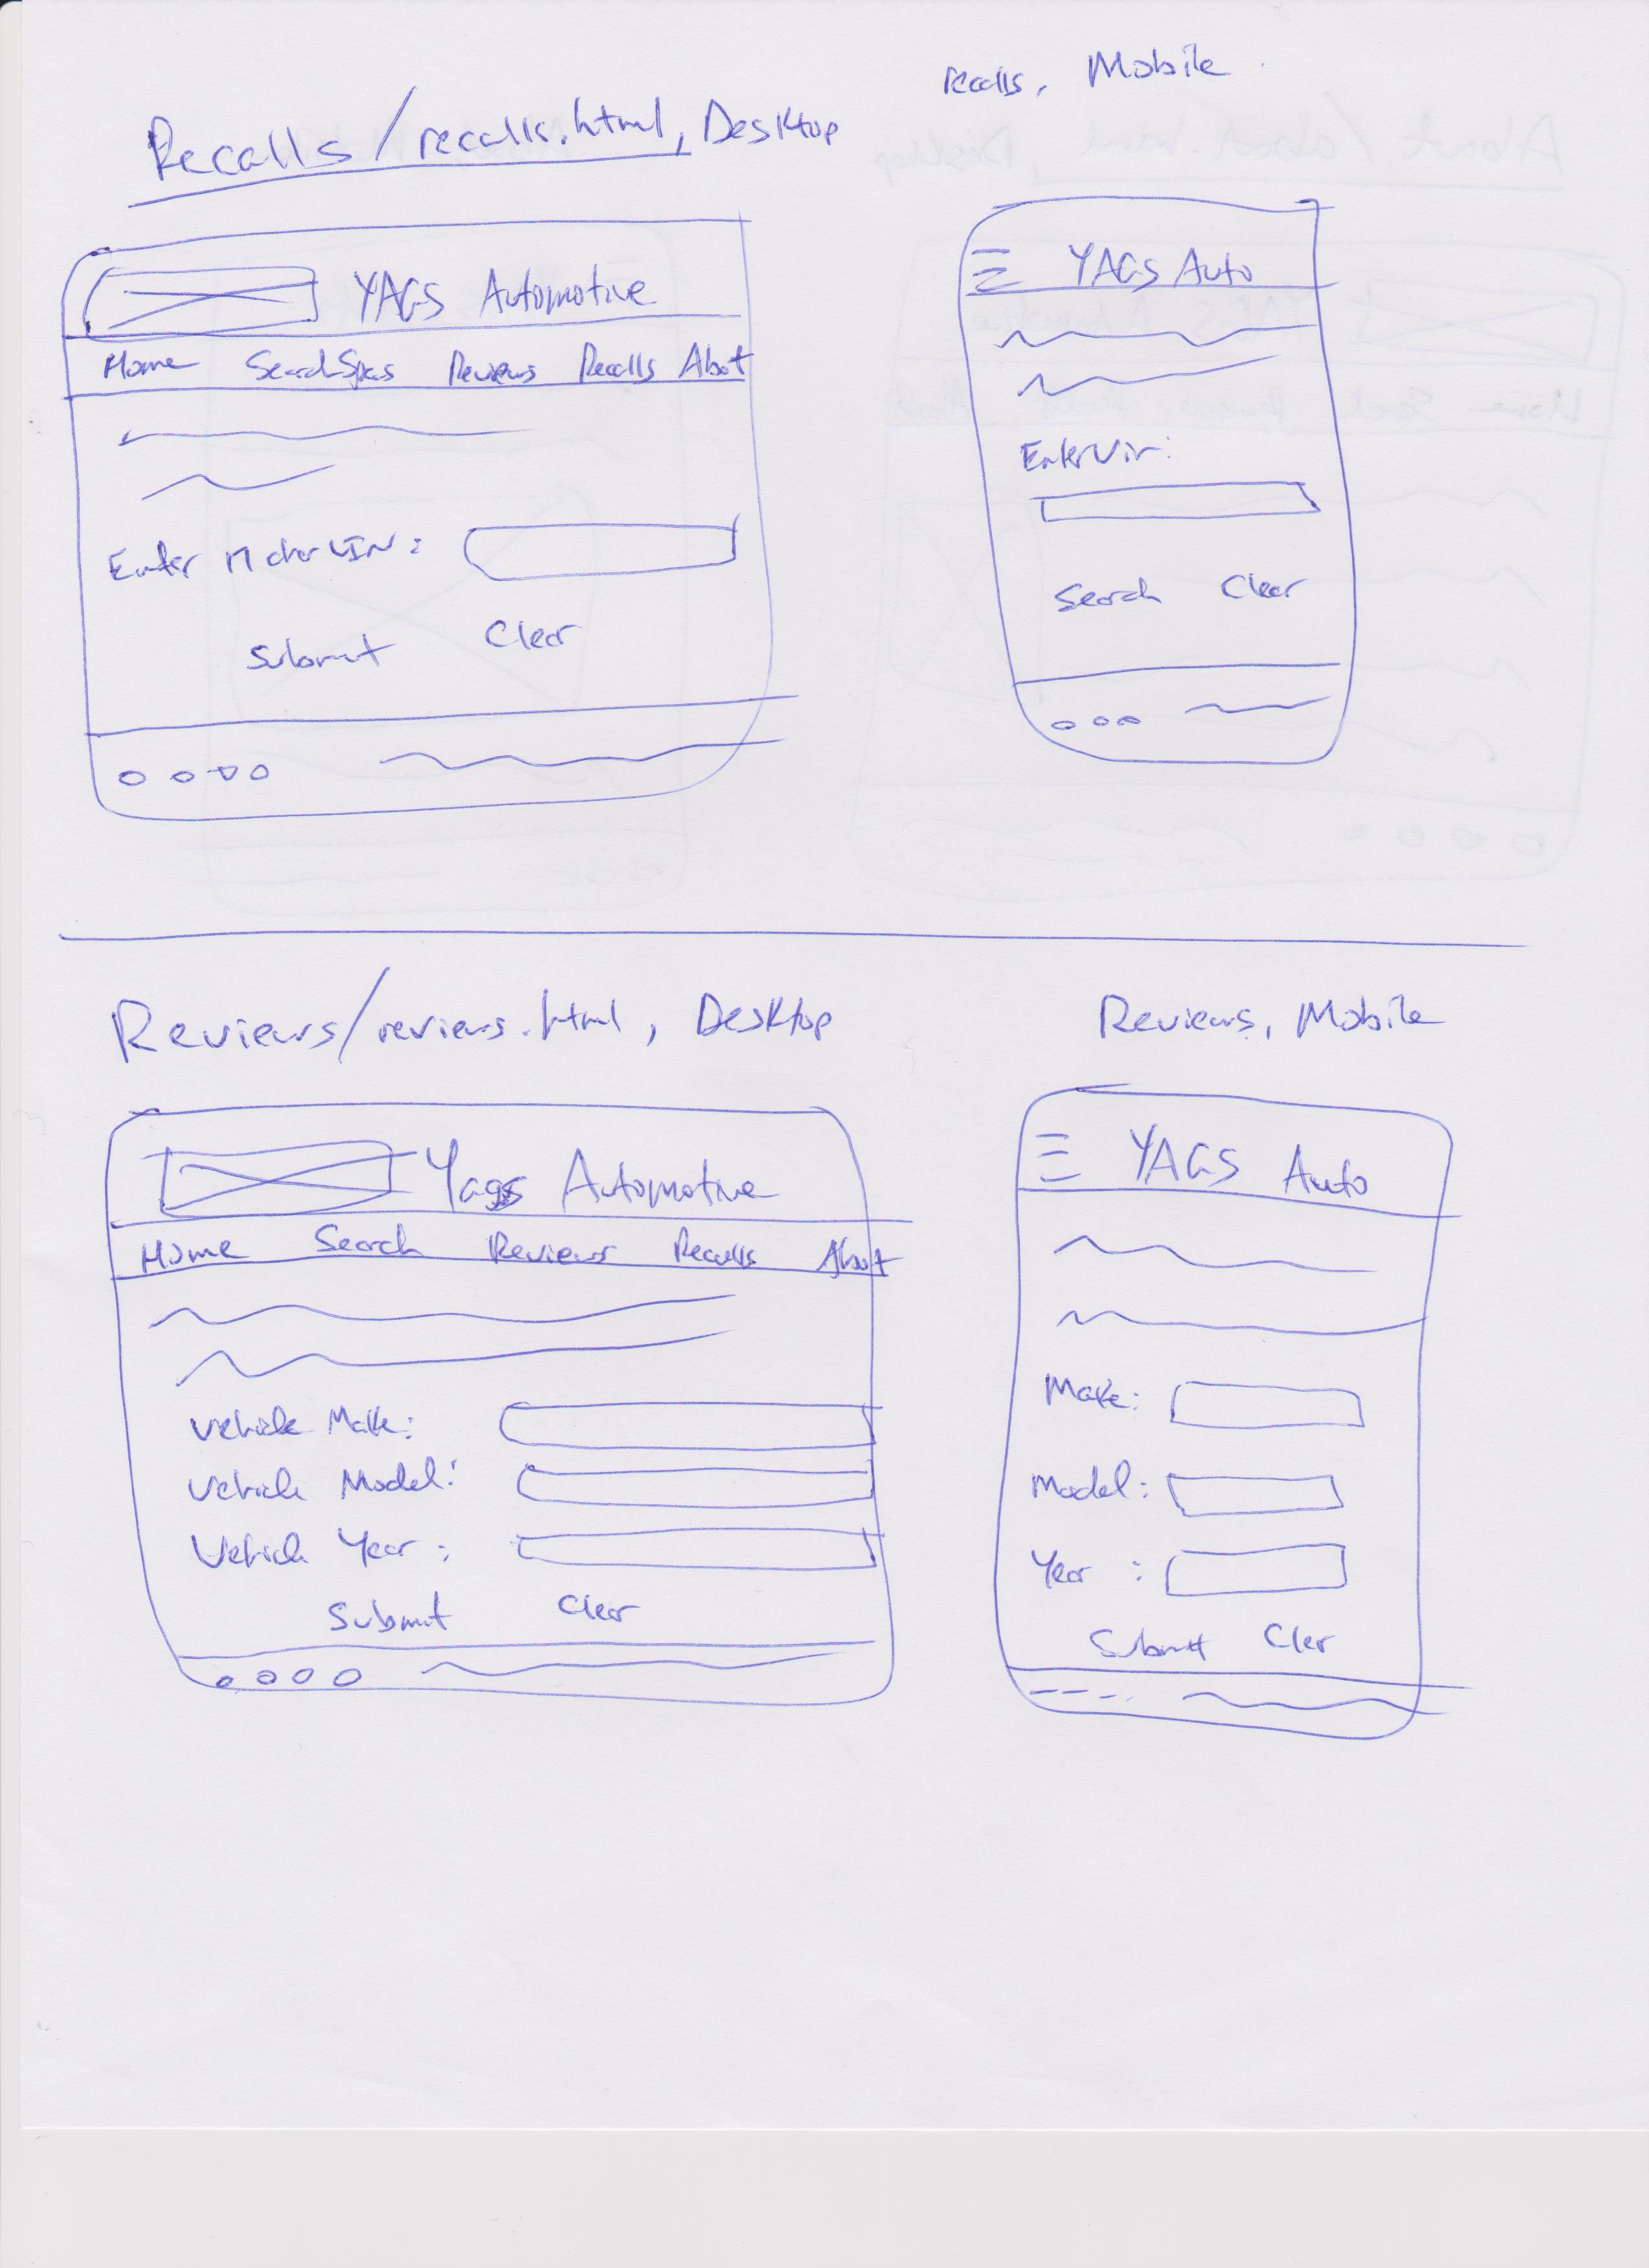 Recalls/recalls.html, Desktop
YAGS Automotive
Home Search Specs Reviews Recalls About
Enter VIN:
Submit Clear
recalls, Mobile
YAGS Auto
Enter Vin:
Search Clear
Reviews/reviews.html, Desktop
Yags Automotive
Home Search Reviews Recalls About
Vehicle Make:
Vehicle Model:
Vehicle Year:
Submit Clear
Reviews, Mobile
YAGS Auto
Make:
Model:
Year :
Submit Clear